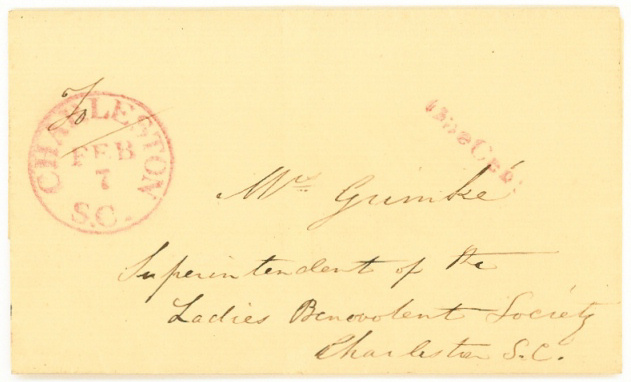 To
CHARLESTON
FEB
7
S.C.
Mrs Grimké
Superintendent of the
Ladies Benevolent Society
Charleston S.C.